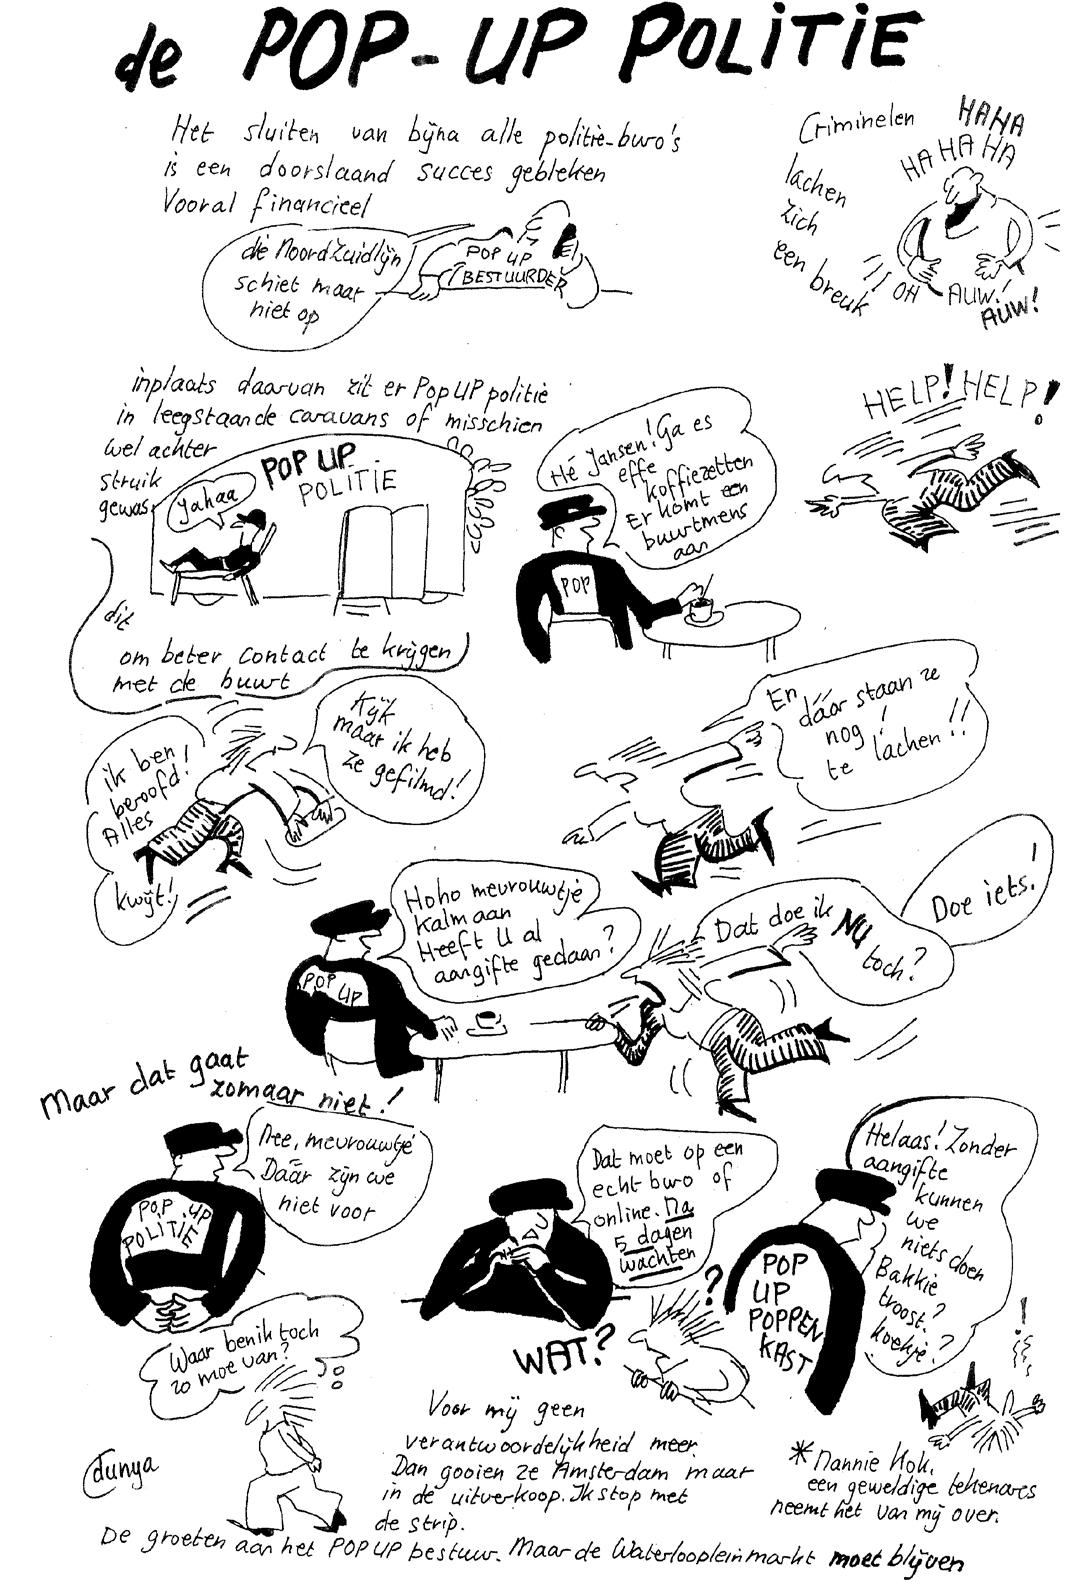 de POP-UP POLITIE
Het sluiten van bijna alle politie-buro's
is een doorslaand succes gebleken
Vooral financieel
die NoordZuidlijn
schiet maar
niet op
POP UP
BESTUURDER
Criminelen
lachen
zich
een breuk
HAHA
HA HA HA
OH AUW!
AUW!
inplaats daarvan zit er Pop UP politie
in leegstaande caravans of misschien
wel achter
struik
gewas
POP UP
POLITIE
Yahaa
dit
om beter contact te krijgen
met de buurt
Hé Jansen! Ga es
effe
koffiezetten
Er komt een
buurtmens
aan
POP
HELP! HELP!
ik ben
beroofd!
Alles
kwijt!
Kijk
maar ik heb
ze gefilmd!
En
dáár staan ze
nog!
te lachen!!
Hoho mevrouwtje
Kalm aan
Heeft U al
aangifte gedaan?
POP
UP
Dat doe ik NU
toch?
Doe iets!
Maar dat gaat
zomaar niet!
Nee, mevrouwtje
Dáár zijn we
niet voor
POP-UP
POLITIE
Dat moet op een
echt buro of
online. Na
5 dagen
wachten
WAT?
?
Helaas! Zonder
aangifte
kunnen
we
niets doen
Bakkie
troost?
koekje?
POP
UP
POPPEN
KAST
!
Waar ben ik toch
zo moe van?
dunya
Voor mij geen
verantwoordelijkheid meer.
Dan gooien ze Amsterdam maar
in de uitverkoop. Ik stop met
de strip.
* Nannie Kok,
een geweldige tekenares
neemt het van mij over.
De groeten aan het POP UP bestuur. Maar de Waterloopleinmarkt moet blijven